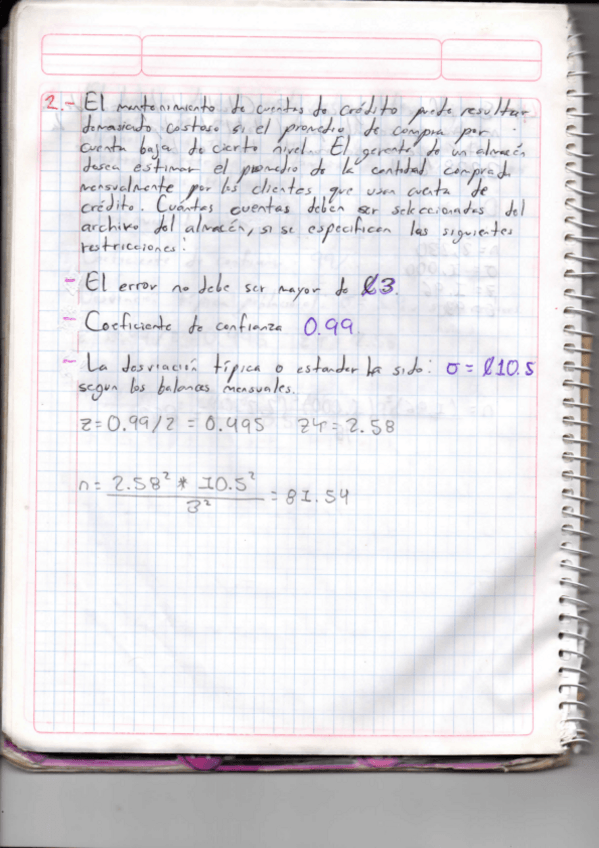 2.- El mantenimiento de cuentas de crédito puede resultar
demasiado costoso si el promedio de compra por
cuenta baja de cierto nivel. El gerente de un almacén
desea estimar el promedio de la cantidad comprada
mensualmente por los clientes que usen cuenta de
crédito. Cuántas cuentas deben ser seleccionadas del
archivo del almacén, si se especifican las siguientes
restricciones:
- El error no debe ser mayor de ȼ3.
- Coeficiente de confianza 0.99
- La desviación típica o estander ha sido: σ = ȼ10.5
segun los balances mensuales.
z=0.99/2 = 0.495 ZT=2.58
n= 2.58² * 10.5² = 81.54
3²